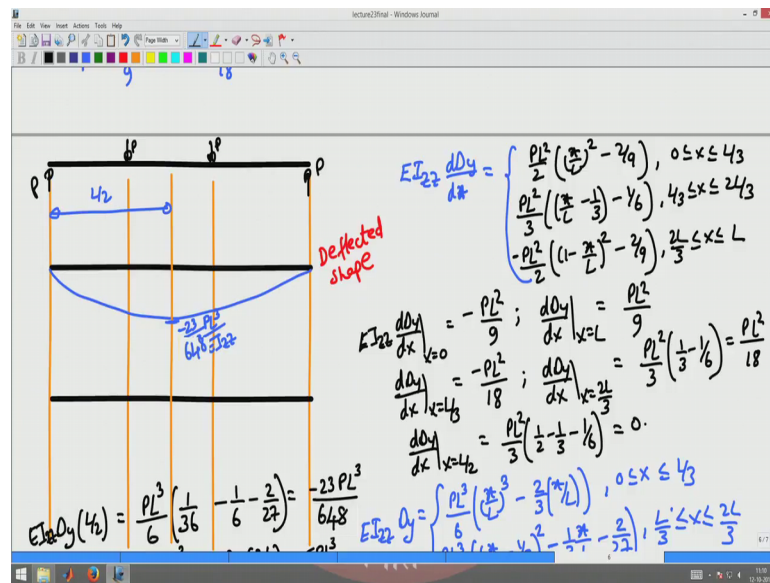 lecture23final - Windows Journal
File Edit View Insert Actions Tools Help
Page Width
B I
9 18
P P P P
L/2
Deflected shape
-23 PL³ / 648 EIzz
EIzz Dy(L/2) = PL³/6 (1/36 - 1/6 - 2/27) = -23PL³/648
EIzz dDy/dx = { PL²/2 ((x/L)² - 2/9), 0 ≤ x ≤ L/3
PL²/3 ((x/L - 1/3) - 1/6), L/3 ≤ x ≤ 2L/3
-PL²/2 ((1 - x/L)² - 2/9), 2L/3 ≤ x ≤ L
EIzz dDy/dx|x=0 = -PL²/9 ; dDy/dx|x=L = PL²/9
dDy/dx|x=L/3 = -PL²/18 ; dDy/dx|x=2L/3 = PL²/3 (1/3 - 1/6) = PL²/18
dDy/dx|x=L/2 = PL²/3 (1/2 - 1/3 - 1/6) = 0.
EIzz Dy = { PL³/6 ((x/L)³ - 2/3 (x/L)), 0 ≤ x ≤ L/3
L/3 ≤ x ≤ 2L/3
6/7
11:10